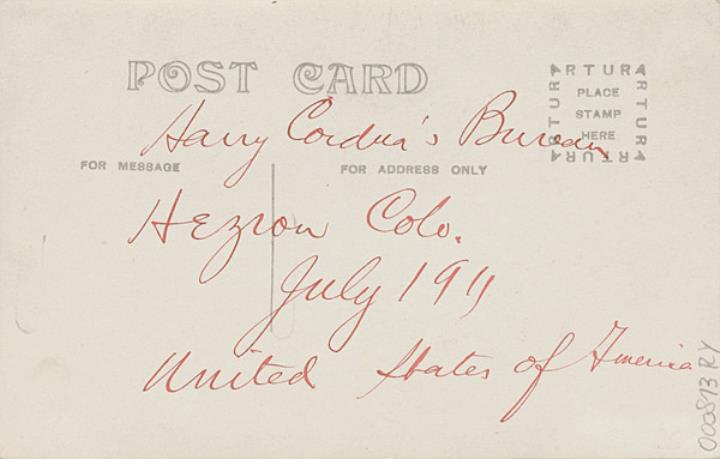 POST CARD
ARTURA
ARTURA
ARTURA
ARTURA
PLACE
STAMP
HERE
Harry Cordua's Bureau
FOR MESSAGE
FOR ADDRESS ONLY
Hezron Colo.
July 1911
United States of America
000813 RY